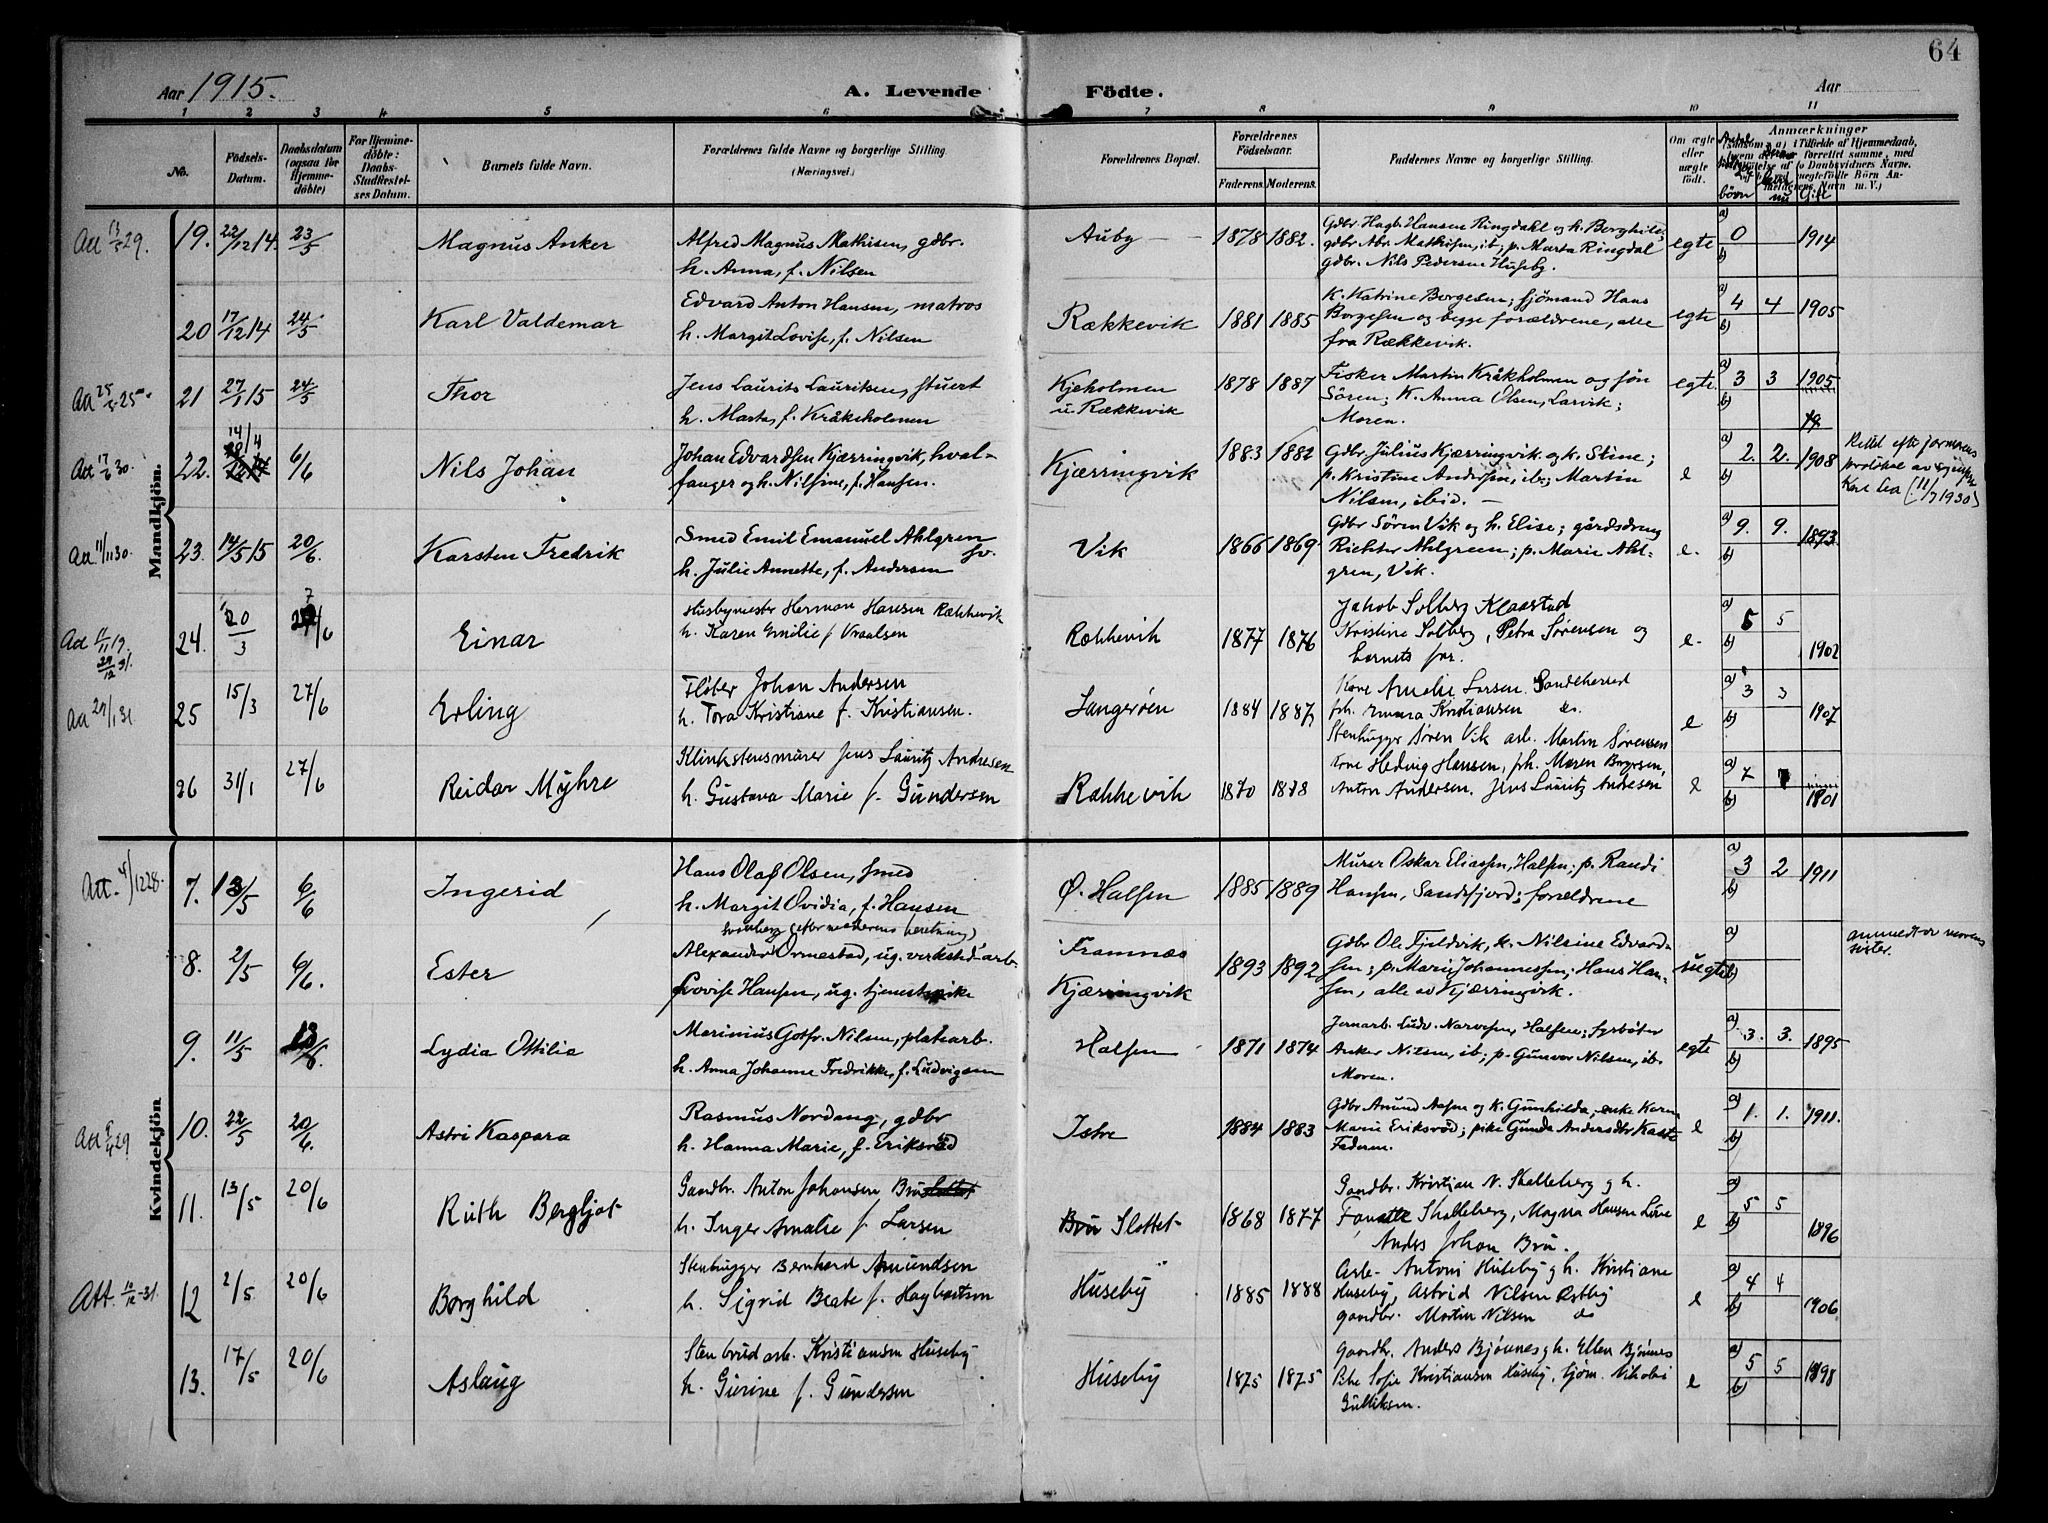 64
Aar 1915.
A. Levende Födte.
Aar
1 2 3 4 5 6 7 8 9 10 11
No.
Födsels-Datum.
Daabsdatum (ogsaa for Hjemme-döbte)
For Hjemme-döbte: Daabs-Stadfæstel-ses Datum.
Barnets fulde Navn.
Forældrenes fulde Navne og borgerlige Stilling.
(Næringsvei.)
Forældrenes Bopæl.
Forældrenes Födselsaar.
Faderens. Moderens.
Faddernes Navne og borgerlige Stilling.
Om ægte eller uægte födt.
Anmærkninger
börn
Gift
Mandkjön.
Att 13/5 29.
19. 22/12 14. 23/5 Magnus Anker
Alfred Magnus Mathisen, gdbr.
h. Anna, f. Nilsen
Auby 1878 1882.
Gdbr Hagb. Hansen Ringdahl og h. Borghild;
gdbr. Abr. Mathisen, ib; p. Marta Ringdal
gdbr. Nils Pedersen Huseby.
egte a) 0 b) 1914
20 17/12 14 24/5 Karl Valdemar
Edvard Anton Hansen, matros
h. Margit Lovise, f. Nilsen
Rækkevik 1881 1885
K. Katrine Borgesen; sjömand Hans
Borgesen og begge forældrene, alle
fra Rækkevik.
egte a) 4 4 b) 1905
21 27/1 15 24/5 Thor
Jens Laurits Lauritsen, stuert
h. Marta, f. Kråkeholmen
Kjeholmen
u. Rækkevik
1878 1887
Fisker Martin Kråkholmen og søn
Sören; K. Anna Olsen, Larvik;
Moren.
egte. a) 3 3 b) 1905
Att 17/6 30.
22. 14/4 6/6 Nils Johan
Johan Edvardsen Kjærringvik, hval-
fanger og h. Nilsine, f. Hansen.
Kjærringvik 1883 1882
Gdbr Julius Kjærringvik og k. Stine;
p. Kristine Andersen, ib; Martin
Nilsen, ibid.
e a) 2. 2. b) 1908
23. 14/5 15 20/6. Karsten Fredrik
Smed Emil Emanuel Ahlgren
sv.
h. Julie Annette, f. Andersen
Vik 1866 1869.
Gdbr Sören Vik og h. Elise; gårdsdreng
Richter Ahlgreen; p. Marie Ahl-
gren, Vik.
e. a) 9. 9. b) 1893.
24. 20/3 Einar
Husbymester Herman Hansen Rækkevik
h. Karen Emilie f Vraalsen
Rækkevik 1877 1876
Jakob Solberg Klaastad
Kristine Solberg, Petra Sørensen og
barnets far.
e- a) 5 5 b) 1902
25 15/3 27/6 Erling
Fløter Johan Andersen
h. Tora Kristiane f. Kristiansen.
Langerøen 1884 1887
Kone Amelie Larsen Sandeherred
frk. Emma Kristiansen do.
Stenhugger Søren Vik arb. Martin Sørensen
e a) 3 3 b) 1907
26 31/1 27/6 Reidar Myhre
Klinkstensmurer Jens Lauritz Andresen
h. Gustava Marie f. Gundersen
Rækkevik 1870 1878
Kone Hedvig Hansen, frk. Maren Borgesen,
Anton Andersen. Jens Lauritz Andresen
e a) 7 7 b) 1901
Kvindekjön
Att. 4/12 28.
7. 13/5 6/6 Ingerid
Hans Olaf Olsen, smed
h. Margit Ovidia, f. Hansen
Ø. Halsen 1885 1889
Murer Oskar Eliassen, Halsen; p. Randi
Hansen, Sandefjord; forældrene
a) 3 2 b) 1911
8. 2/5 6/6. Ester
Alexander Ormestad, ug. verksted-arb.
Lovise Hansen, ug. tjenestepike
Framnæs
Kjærringvik
1893 1892
Gdbr Ole Fjeldvik, k. Nilsine Edvard-
sen; p. Marie Johannessen; Hans Han-
sen, alle av Kjærringvik.
uegte a) b)
anmeldt av morens
søster.
9. 11/5 13/6. Lydia Ottilia
Marinius Gotfr. Nilsen, platearb.
h. Anna Johanne Fredrikke, f. Ludvigsen
Halsen 1871 1874
Jernarb. Ludv. Narvesen, Halsen; fyrbøter
Anker Nilsen, ib; p. Gunvor Nilsen, ib.
Moren.
egte a) 3. 3. b) 1895
10. 22/5 20/6. Astri Kaspara
Rasmus Nordang, gdbr
h. Hanna Marie, f. Eriksröd
Istre 1884 1883
Gdbr Amund Aasen og K. Gunhilda; enke Karen
Marie Eriksröd; pike Gunda Andersdtr Kaste
Faderen.
e a) 1. 1. b) 1911.
11. 13/5 20/6 Ruth Bergljot
Gaardbr. Anton Johansen Bru
h. Inger Amalie f Larsen
Bru Slottet 1868 1877
Gaardbr. Kristian N. Skalleberg g h.
Skalleberg, Magna Hansen
Anders Johan Bru.
e a) 5 5 b) 1896
12 2/5 20/6 Borghild
Stenhugger Bernhard Amundsen
h. Sigrid Beate f.
Huseby 1885 1888
Arb- Antoni Huseby g h. Kristiane
Huseby, Astrid Nilsen Østby
gaardbr. Martin Nilsen do
e a) 4 4 b) 1906
13. 17/5 20/6 Aslaug
Stenbrud arb. Kristiansen Huseby
h. Gurine f. Gundersen
Huseby 1875 1875
Gaardbr. Anders Bjønnes g h. Ellen Bjønnes
Pike Sofie Kristiansen Huseby, tjørn. Nikolai
Gulliksen.
e a) 5 5 b) 1898